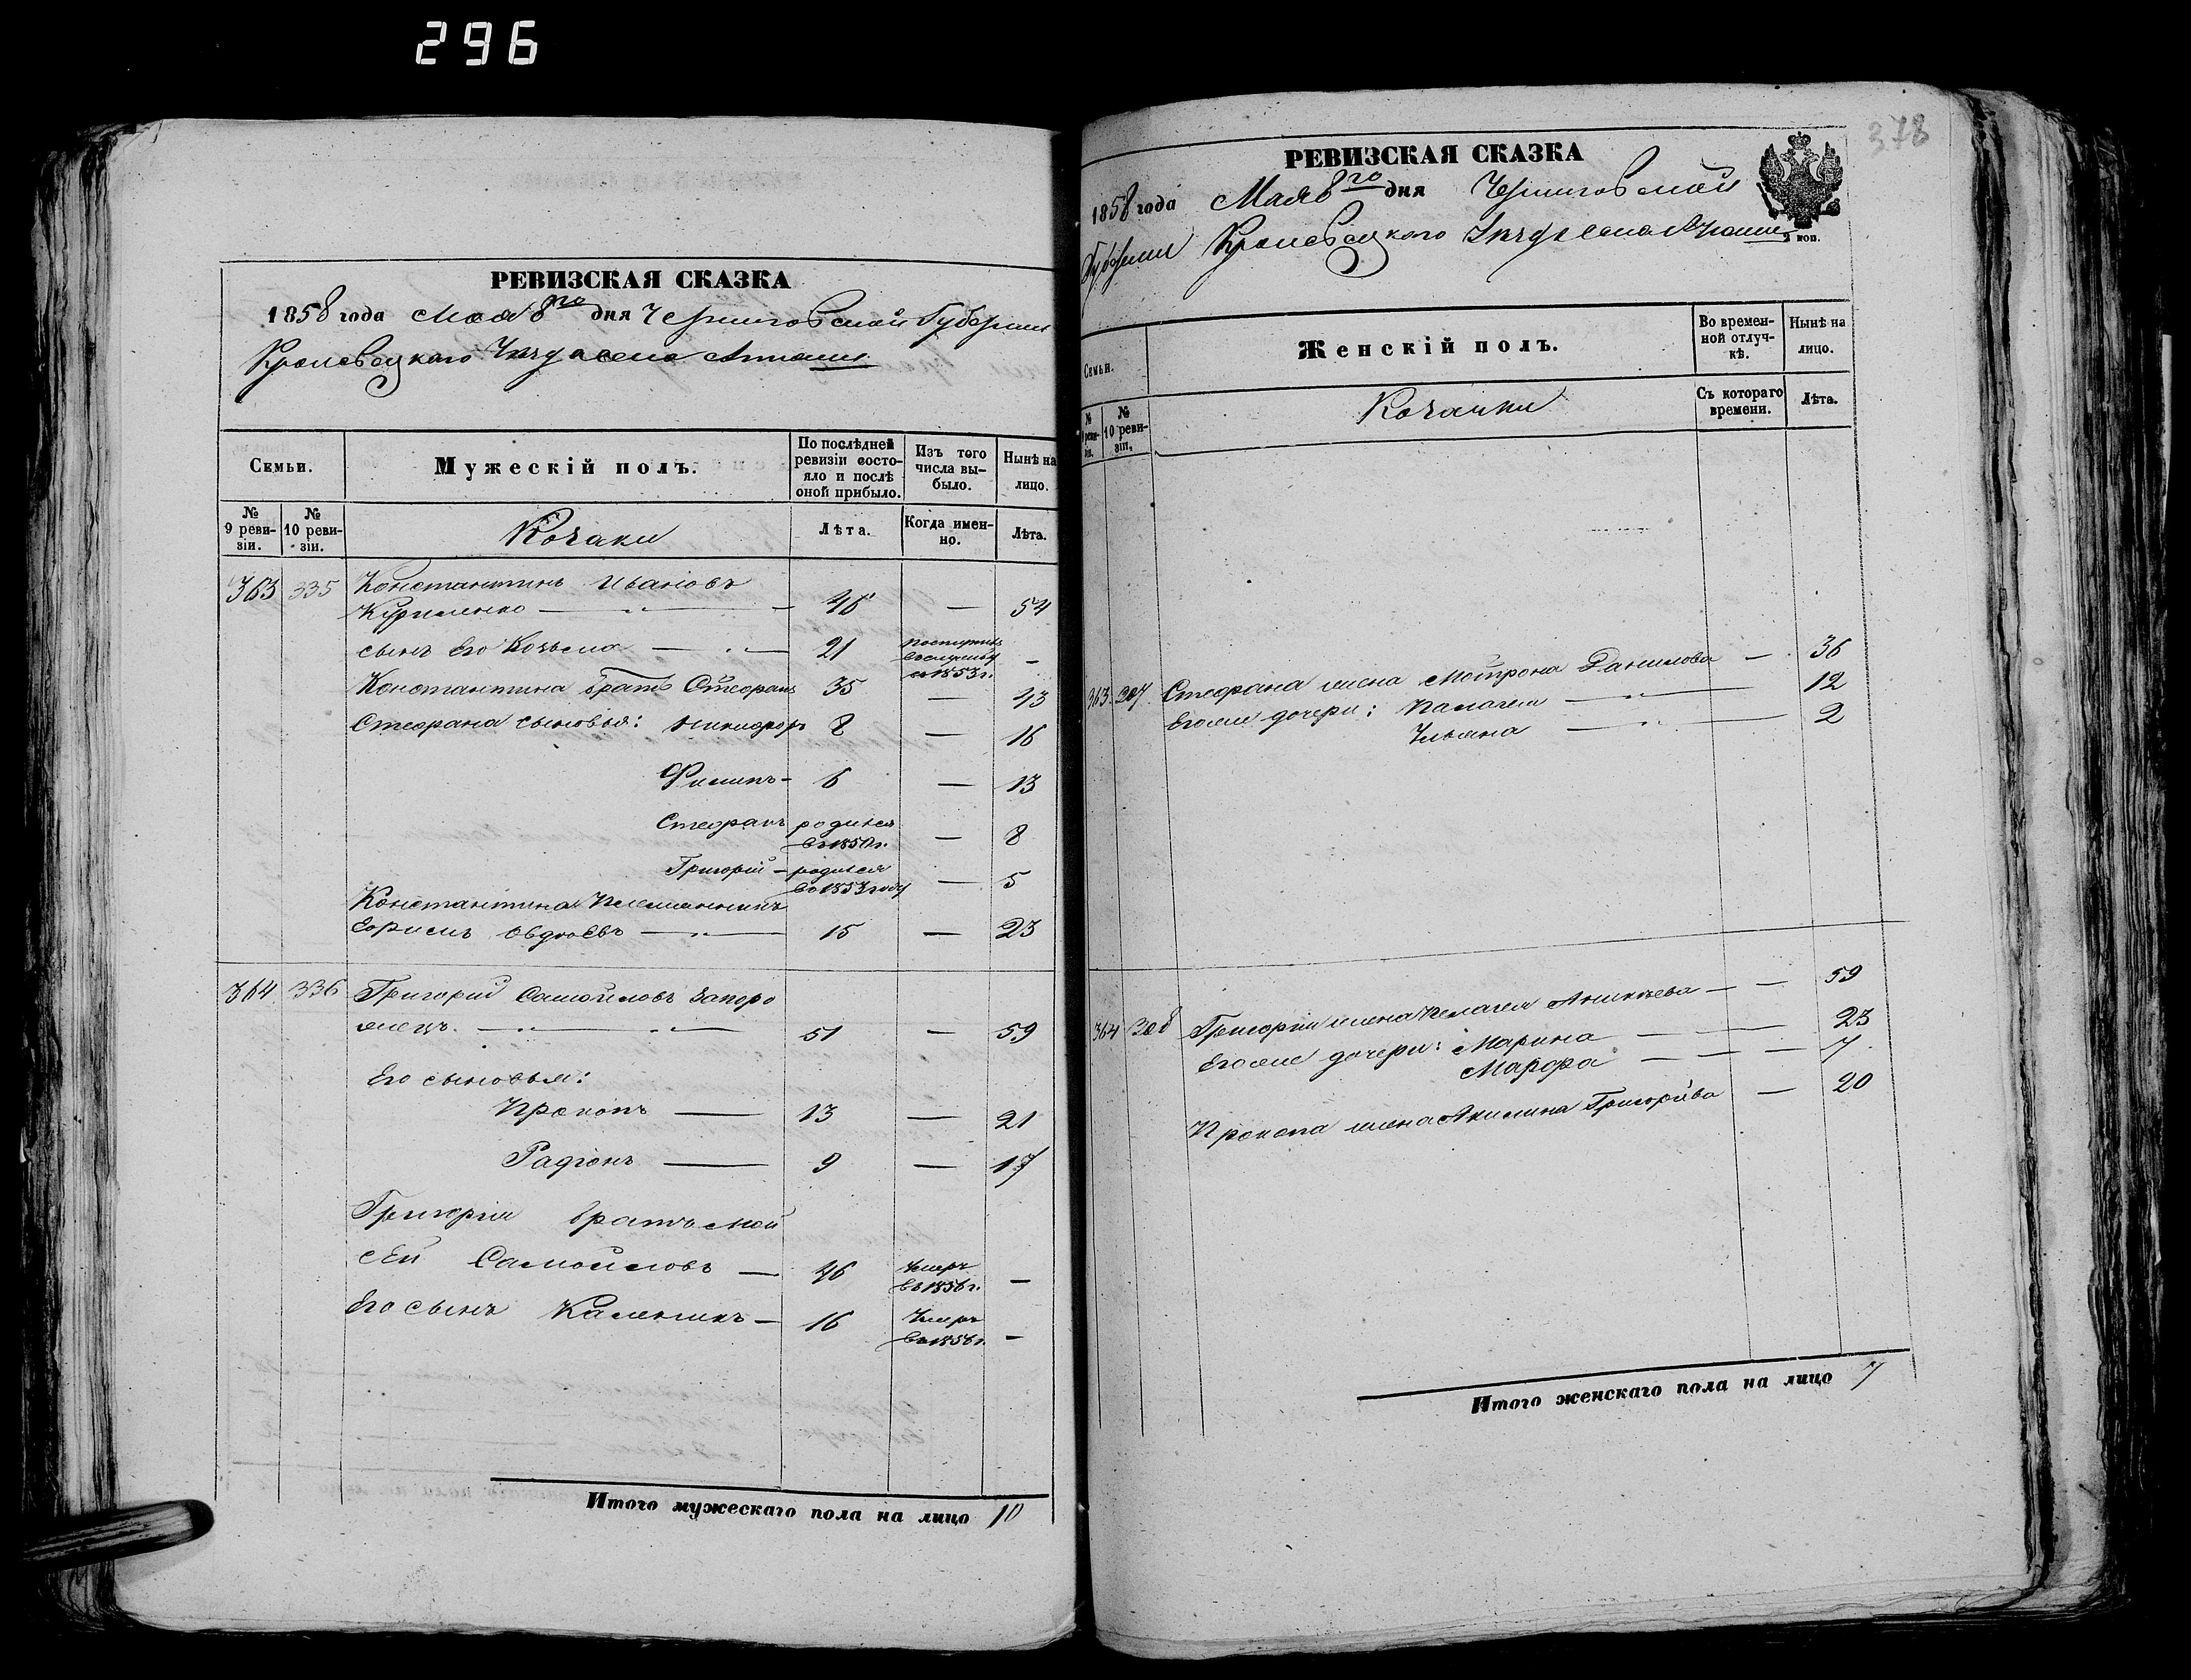 296
РЕВИЗСКАЯ СКАЗКА
1858 года Мая 8го дня Черниговской Губернии
Кролевецкого Уезда села
Семьи.
Мужескій полъ.
По послѣдней ревизіи состояло и послѣ оной прибыло.
Изъ того числа выбыло.
Нынѣ на лицо.
№ 9 ревизіи.
№ 10 ревизіи.
Козаки
Лѣта.
Когда именно.
Лѣта.
363 335 Константинъ Ивановъ
Куриленко — 46 — 54
сынъ Его Козьма — 21 въ 1853 г. —
Константина братъ Стефанъ 35 — 43
Стефана сыновья: Никифоръ 8 — 16
Филипъ — 6 — 13
Стефанъ родился въ 1850 г. — 8
Григорій — родился въ 1853 году — 5
Константина Племянникъ
Ефимъ — 15 — 23
364 336 Григорий Самойловъ Запоро
жецъ. — 51 — 59
Его сыновья:
Прокопъ — 13 — 21
Радіонъ — 9 — 17
Григорія братъ Мой
сей Самойловъ — 46 Умеръ въ 1856 г. —
Его сынъ Каленикъ — 16 Умеръ въ 1856 г. —
Итого мужескаго пола на лицо 10
378
РЕВИЗСКАЯ СКАЗКА
1858 года Мая 8го дня Черниговской
Губернии Кролевецкого Уезда села
коп.
Семьи.
Женскій полъ.
Во временной отлучкѣ.
Нынѣ на лицо.
№ ревизіи.
№ 10 ревизіи.
Козачки
Съ котораго времени.
Лѣта.
363 207 Стефана жена Мотрона Данилова — 36
Егоже дочери: Палагея — 12
Ульяна — 2
364 208 Григорія жена Пелагея — — 59
Егоже дочери: Марина — — 23
Марфа — — — 7
Прокопа жена Акилина — 20
Итого женскаго пола на лицо 7